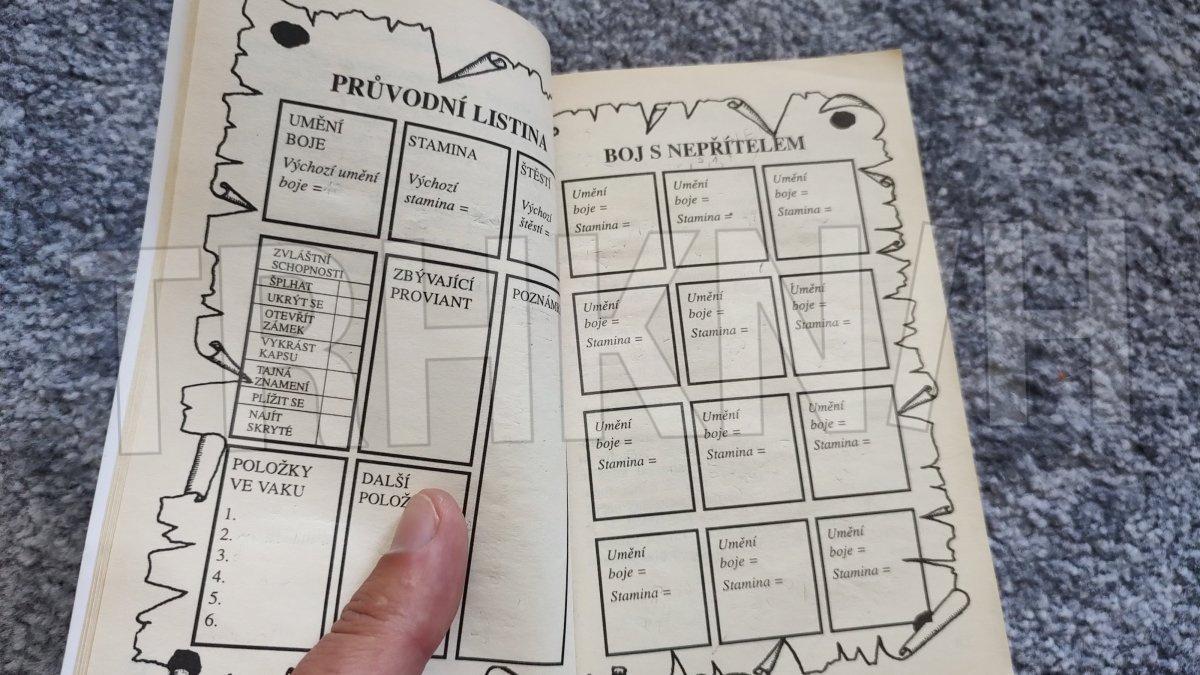 PRŮVODNÍ LISTINA
UMĚNÍ
BOJE
Výchozí umění
boje =
STAMINA
Výchozí
stamina =
ŠTĚSTÍ
Výchozí
štěstí =
ZVLÁŠTNÍ
SCHOPNOSTI
ŠPLHAT
UKRÝT SE
OTEVŘÍT
ZÁMEK
VYKRÁST
KAPSU
TAJNÁ
ZNAMENÍ
PLÍŽIT SE
NAJÍT
SKRYTÉ
ZBÝVAJÍCÍ
PROVIANT
POZNÁM
POLOŽKY
VE VAKU
1.
2.
3.
4.
5.
6.
DALŠÍ
POLOŽ
BOJ S NEPŘÍTELEM
Umění
boje =
Stamina =
Umění
boje =
Stamina =
Umění
boje =
Stamina =
Umění
boje =
Stamina =
Umění
boje =
Stamina =
Umění
boje =
Stamina =
Umění
boje =
Stamina =
Umění
boje =
Stamina =
Umění
boje =
Stamina =
Umění
boje =
Stamina =
Umění
boje =
Stamina =
Umění
boje =
Stamina =
TRHKNIH